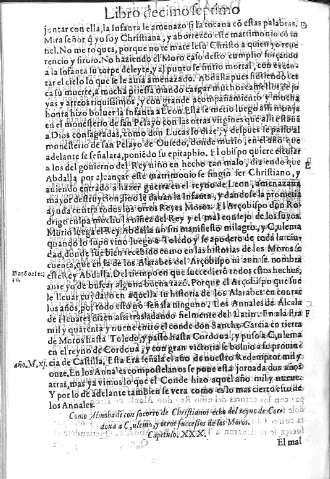 Libro decimo septimo
juntar con ella, la Infanta le amenazo si la tocaua cõ estas palabras.
Mira señor q̃ yo soy Christiana, y aborrezco este matrimonio cõ in
fiel. No me toques, porque no te mate Iesu Christo a quien yo reue
rencio y siruo. No haziendo el Moro caso desto cumplio forçando
a la Infanta su torpe deleyte, y al punto le hirio mortal, con
tar el cielo lo que le le auia amenazado. Abdalla pues sintiendo
ca su muerte, a mucha priessa mando cargar muchos camellos de jo
yas y arreos riquissimos, y con grande acompañamiento y mucha
honra hizo boluer la Infanta a Leon. Ella se metio luego alli monja
en el monesterio de san Pelayo con las otras virgines que alli estauã
a Dios consagradas, como don Lucas lo dize, y despues se passo al
monesterio de san Pelayo de Ouiedo, donde murio, en el año que
adelante se señalara, poniendo su epitaphio. El obispo quiere escusar
a los del gouierno del Rey niño en hecho tan malo, diziendo que
Abdalla por alcançar este matrimonio se fingio ser Christiano, y
auiendo entrado a hazer guerra en el reyno de Leon, amenazaua
mayor destruycion sino le dauan la Infanta, y dandosela prometia
ayuda contra todos los otros Reyes Moros. El Arçobispo don Ro-
drigo culpa mucho la niñez del Rey y el mal consejo de los suyos.
Murio luego el Rey Abdalla con vn manifiesto milagro, y Çulema
quando lo supo vino luego a Toledo y se apodero de toda la ciu-
dad, donde fue bien recebido como en las historias de los Moros se
cuenta, que en la de los Alarabes del Arçobispo ni aun se nombra
este Rey Abdalla. Del tiempo en que succedieron todos estos hechos,
aure yo de buscar alguna buena razon. Porque el Arçobispo que sue
le lleuar cuydado en aquella su historia de los Alarabes en contar
los años, por todo esto no señala ninguno. Los Annales de Alcala
de Henares dizen assi trasladando fielmente del Latin. En la Era de
mil y quarenta y nueue entro el conde don Sancho Garcia en tierra
de Moros hasta Toledo, y passo hasta Cordoua, y puso a Çulema
en el reyno de Cordoua, y con gran victoria se boluio a su prouin-
cia de Castilla. Esta Era señala el año de nuestro Redemptor mil y
onze. En los Annales compostelanos se pone esta jornada dos años
atras, mas ya vimos lo que el Conde hizo aquel año mil y nueue.
Y por lo de adelante tambien se vera como es lo mas cierto esto de
los Annales.
año. M, xj.
Como Almahadi con socorro de Christianos echo del reyno de Cor
doua a Çulema, y otros successos de los Moros.
Capitulo. XXX.
El mal